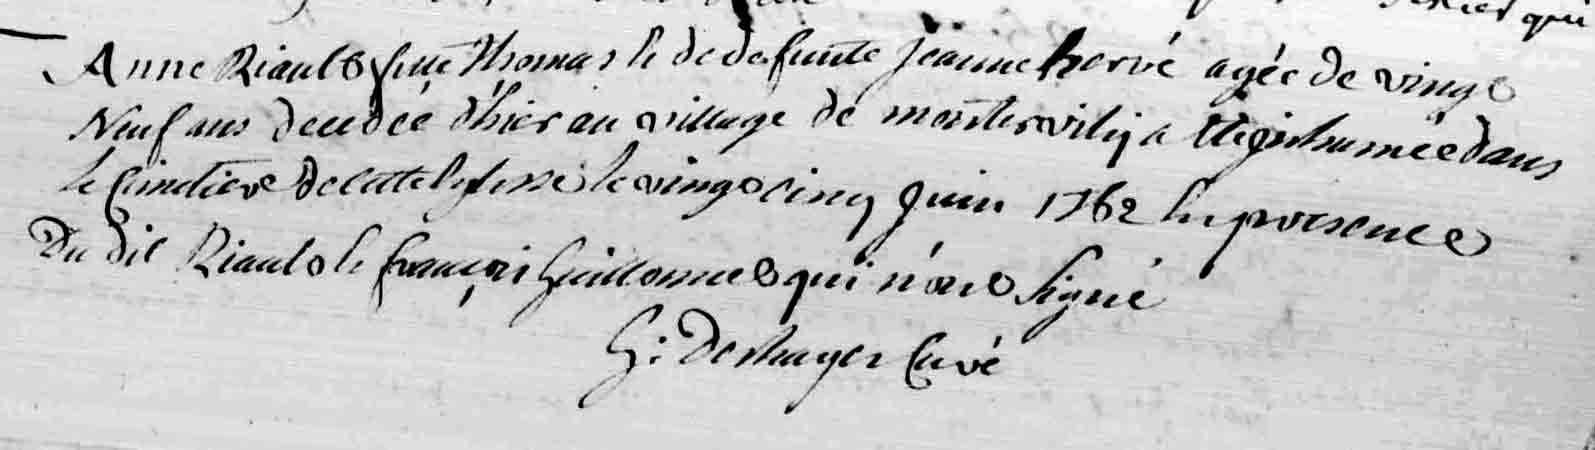 Anne Riault fille Thomas & de defunte Jeanne hervé agée de vingt
Neuf ans decedée d'hier au village de a été inhumée dans
le Cimetiere de cette Eglise le vingt cinq Juin 1762 En presence
Du dit Riault & françois Guillomet qui n'ont signé
G: Deshayes Curé